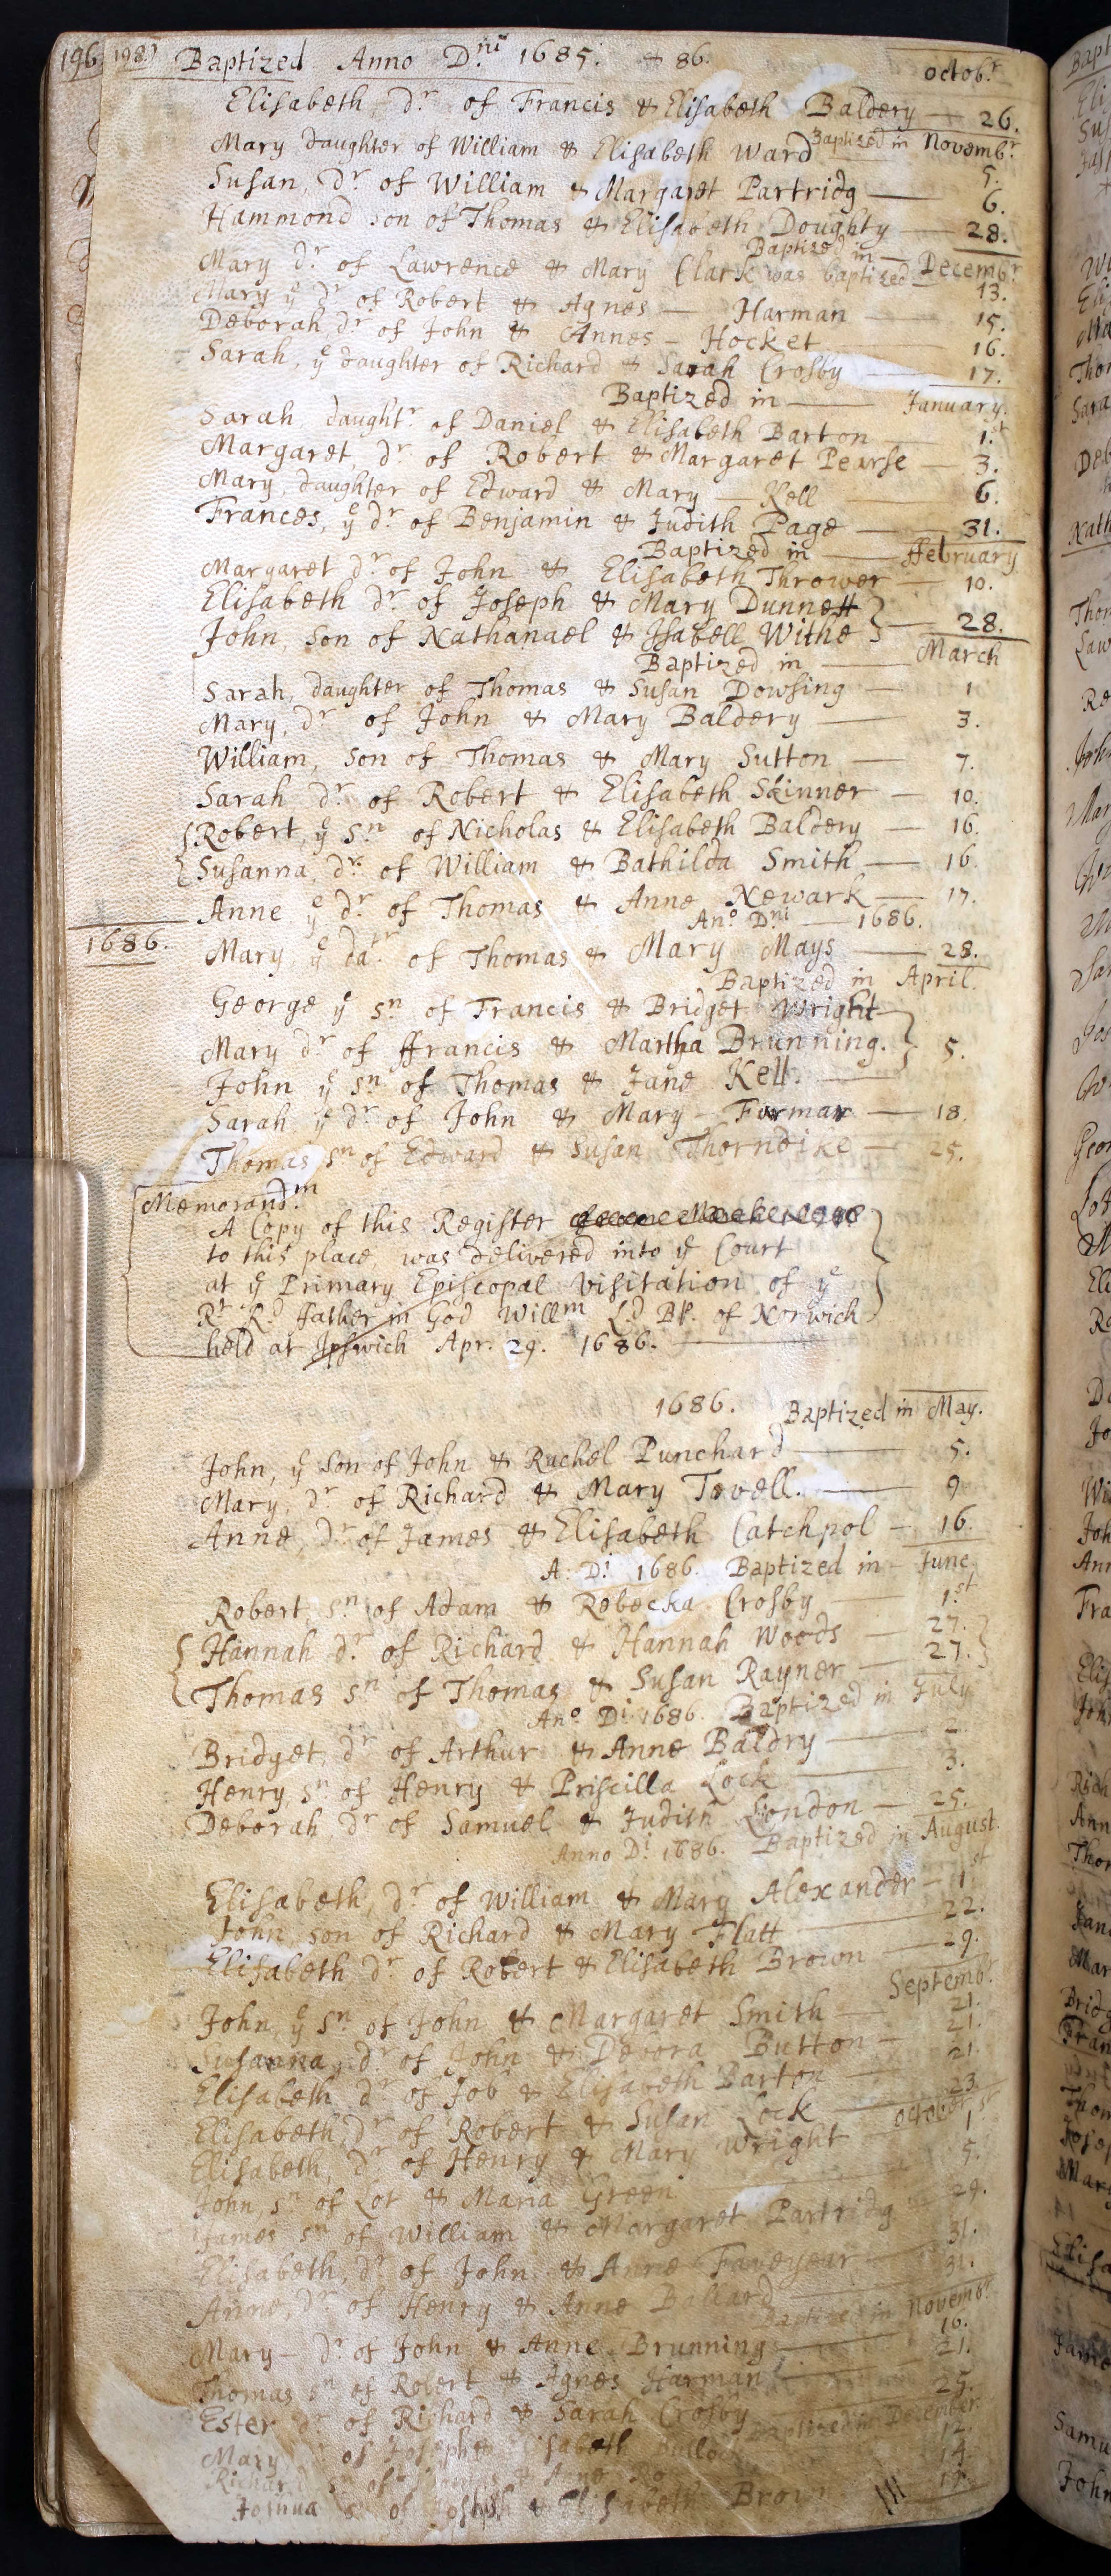 196. 198.) Baptized Anno D.ni 1685. & 86. octobr.
Elisabeth, dr. of Francis & Elisabeth Baldery — 26.
Baptized in Novembr.
Mary daughter of William & Elisabeth Ward 5.
Susan, dr. of William & Margaret Partridg — 6.
Hammond son of Thomas & Elisabeth Doughty — 28.
Baptized in — Decembr
Mary dr. of Lawrence & Mary Clark was baptized 13.
Mary ye dr. of Robert & Agnes — Harman — 15.
Deborah dr. of John & Annes — Hocket 16.
Sarah, ye daughter of Richard & Sarah Crosby — 17.
Baptized in — January.
Sarah daughtr. of Daniel & Elisabeth Barton — 1.st
Margaret, dr. of Robert & Margaret Pearse — 3.
Mary, daughter of Edward & Mary — Kell 6.
Frances, ye dr. of Benjamin & Judith Page — 31.
Baptized in — ffebruary
Margaret dr. of John & Elisabeth Thrower — 10.
Elisabeth dr. of Joseph & Mary Dunnett
John, son of Nathanael & Isabell Withe } — 28.
Baptized in — March
Sarah, daughter of Thomas & Susan Dowsing — 1
Mary, dr. of John & Mary Baldery — 3.
William, son of Thomas & Mary Sutton — 7.
Sarah dr. of Robert & Elisabeth Skinner — 10.
Robert, ye sn of Nicholas & Elisabeth Baldery — 16.
Susanna, dr. of William & Bathilda Smith — 16.
Anne ye dr. of Thomas & Anne Newark — 17.
1686. Ano. Dni — 1686.
Mary, ye datr. of Thomas & Mary Mays — 28.
Baptized in April.
George ye sn of Francis & Bridget Wright
Mary dr. of ffrancis & Martha Brunning. } 5.
John ye sn of Thomas & Jane Kell. —
Sarah ye dr. of John & Mary — Furmar — 18.
Thomas sn of Edward & Susan Thorndike — 25.
Memorandm.
A Copy of this Register
to this place, was delivered into ye Court
at ye Primary Episcopal visitation of ye
Rt. Rd. ffather in God Willm Ld. Bp. of Norwich
held at Ipswich Apr. 29. 1686. —
1686. Baptized in May.
John, ye son of John & Rachel Punchard — 5.
Mary, dr. of Richard & Mary Tovell. — 9
Anne, dr. of James & Elisabeth Catchpol — 16.
A: Di. 1686. Baptized in — June
Robert, sn. of Adam & Rebecka Crosby — 1.st
Hannah dr. of Richard & Hannah Woods — 27.
Thomas sn of Thomas & Susan Rayner — 27.
Ano. Di. 1686. Baptized in July
Bridget, dr. of Arthur & Anne Baldry — 2.
Henry, sn. of Henry & Priscilla Lock — 3.
Deborah dr. of Samuel & Judith London — 25.
Anno Di. 1686. Baptized in August.
Elisabeth, dr. of William & Mary Alexander — 1st
John, son of Richard & Mary Flatt 22.
Elisabeth dr. of Robert & Elisabeth Brown — 29.
Septembr.
John, ye sn. of John & Margaret Smith — 21.
Susanna, dr. of John & Debora Button — 21.
Elisabeth dr. of Job & Elisabeth Barton — 21.
Elisabeth, dr. of Robert & Susan Lock — 23.
october
Elisabeth, dr. of Henry & Mary Wright — 1st
John, sn. of Lot & Maria Green 5.
James sn of William & Margaret Partridg — 29.
Elisabeth, dr. of John & Anne Faveyear — 31.
Anne, dr. of Henry & Anne Ballard 31.
Baptized in Novembr.
Mary — dr. of John & Anne Brunning — 10.
Thomas sn of Robert & Agnes Harman — 21.
Ester dr. of Richard & Sarah Crosby 25.
Baptized in December.
Mary of Joseph & Elisabeth 12.
Richard sn of & Anne 14.
Joshua s. of Joseph & Elisabeth Brow